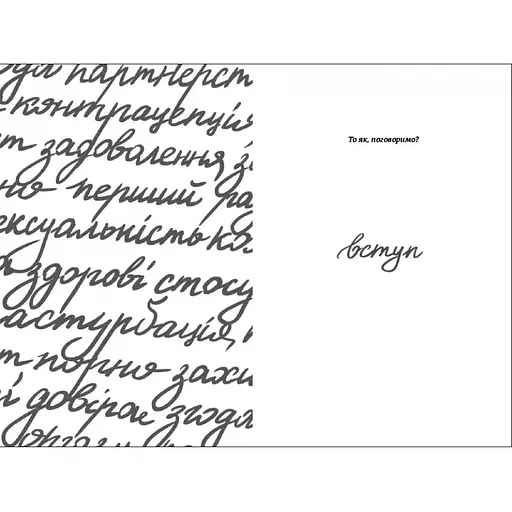 партнерст
контрацепція
т задоволення з
но перший ра
ексуальність ко
здорові стосу
астурбація,
т порно захи
і довіра згода
То як, поговоримо?
вступ